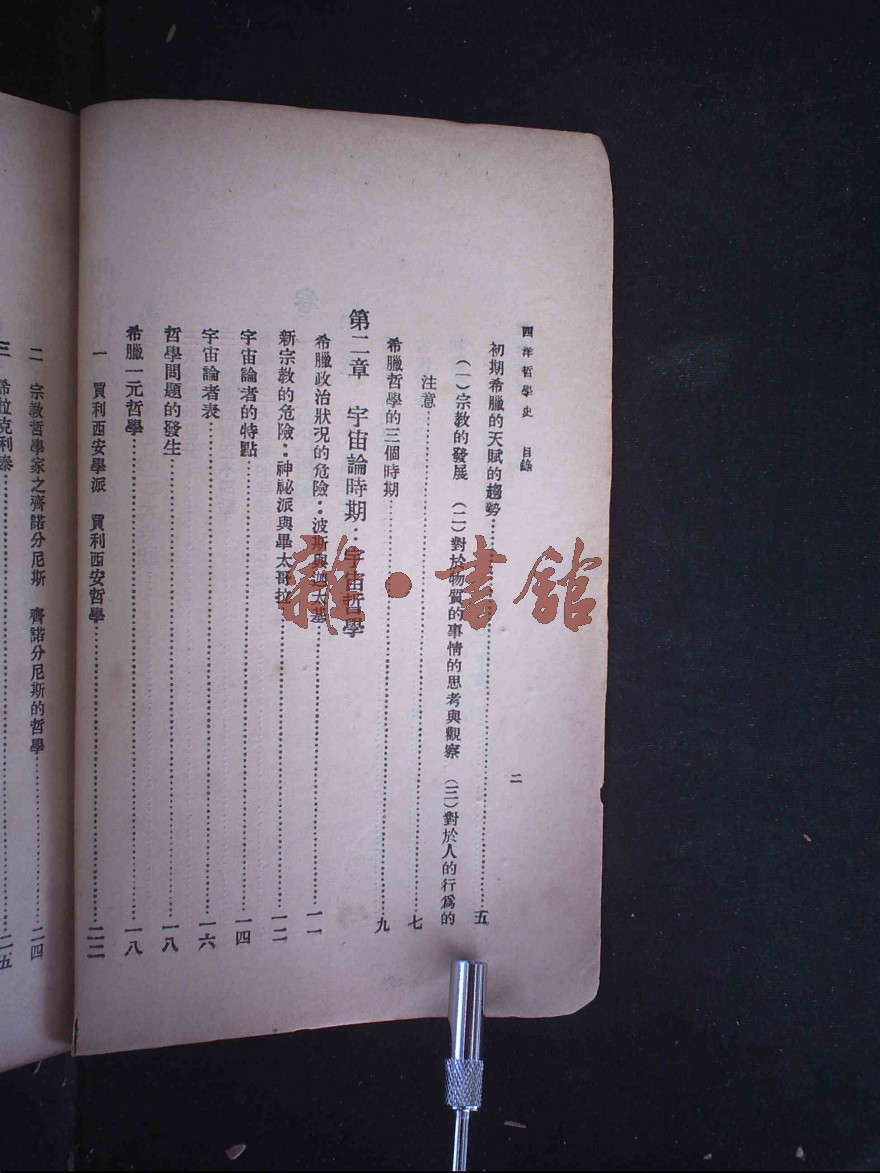 西洋哲學史　目錄
二
初期希臘的天賦的趨勢……五
（一）宗教的發展　（二）對於物質的事情的思考與觀察　（三）對於人的行爲的
注意……七
希臘哲學的三個時期……九
第二章　宇宙論時期：宇宙哲學
希臘政治狀況的危險：波斯與迦太基……一一
新宗教的危險：神祕派與畢太哥拉……一二
宇宙論者的特點……一四
宇宙論者表……一六
哲學問題的發生……一八
希臘一元哲學……一八
一　買利西安學派　買利西安哲學……二二
二　宗教哲學家之齊諾分尼斯　齊諾分尼斯的哲學……二四
三　希拉克利泰……二五
雜·書館